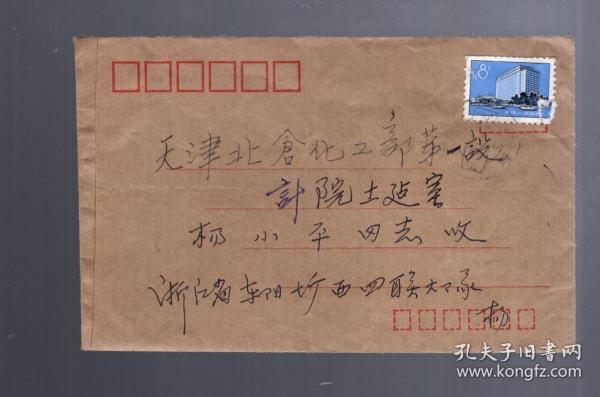 8
天津北倉化工部第一設
計院土建室
杨小平同志收
浙江省东阳圻西四联大队
杨
孔夫子旧书网
www.kongfz.com